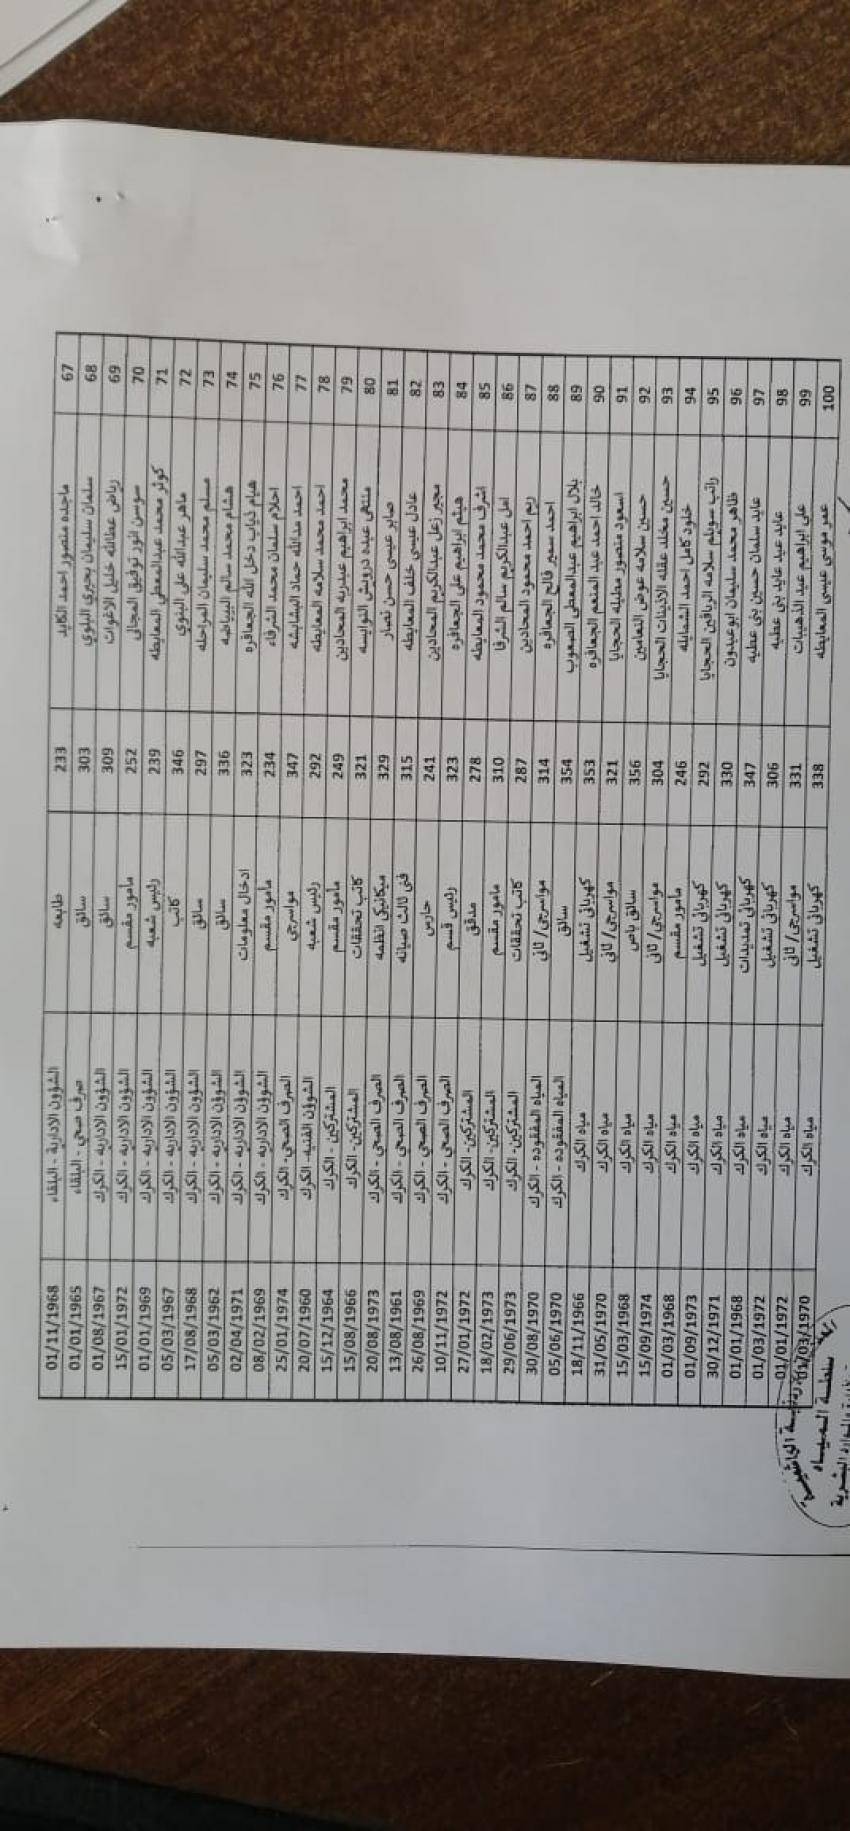 67 ماجده منصور احمد الكايد 233 طابعه الشؤون الادارية - البلقاء 01/11/1968
68 سلمان سليمان بحيري البلوي 303 سائق صرف صحي - البلقاء 01/01/1965
69 رياض عطالله خليل الاغوات 309 سائق الشؤون الاداريه - الكرك 01/08/1967
70 سوسن انور توفيق المجالي 252 مأمور مقسم الشؤون الاداريه - الكرك 15/01/1972
71 كوثر محمد عبدالمعطي المعايطه 239 رئيس شعبه الشؤون الاداريه - الكرك 01/01/1969
72 ماهر عبدالله علي البنوي 346 كاتب الشؤون الاداريه - الكرك 05/03/1967
73 مسلم محمد سليمان المراحله 297 سائق الشؤون الاداريه - الكرك 17/08/1968
74 هشام محمد سالم البيايضه 336 سائق الشؤون الاداريه - الكرك 05/03/1962
75 هيام ذياب دخل الله الجعافره 323 ادخال معلومات الشؤون الاداريه - الكرك 02/04/1971
76 احلام سلمان محمد الشرفاء 234 مأمور مقسم الشؤون الاداريه - الكرك 08/02/1969
77 احمد مدالله حماد البشابشه 347 مواسرجي الصرف الصحي - الكرك 25/01/1974
78 احمد محمد سلامه المعايطه 292 رئيس شعبه الشوؤن الفنيه - الكرك 20/07/1960
79 محمد ابراهيم عبدربه المحادين 249 مأمور مقسم المشتركين - الكرك 15/12/1964
80 منتهى عبده درويش النوايسه 321 كاتب تحققات المشتركين - الكرك 15/08/1966
81 صابر عيسى حسن نصار 329 ميكانيكي انظمه الصرف الصحي - الكرك 20/08/1973
82 عادل عيسى خلف المعايطه 315 فني ثالث صيانه الصرف الصحي - الكرك 13/08/1961
83 مجبر زعل عبدالكريم المحادين 241 حارس الصرف الصحي - الكرك 26/08/1969
84 هيثم ابراهيم علي الجعافره 323 رئيس قسم الصرف الصحي - الكرك 10/11/1972
85 اشرف محمد محمود المعايطه 278 مدقق المشتركين - الكرك 27/01/1972
86 امل عبدالكريم سالم الشرفا 310 مامور مقسم المشتركين - الكرك 18/02/1973
87 ريم احمد محمود المحادين 287 كاتب تحققات المشتركين - الكرك 29/06/1973
88 احمد سمير فالح الجعافره 314 مواسرجي/ ثاني المياه المفقوده - الكرك 30/08/1970
89 بلال ابراهيم عبدالمعطي الصعوب 354 سائق المياه المفقوده - الكرك 05/06/1970
90 خالد احمد عبد المنعم الجعافره 353 كهربائي تشغيل مياه الكرك 18/11/1966
91 اسعود منصور مطيله الحجايا 321 مواسرجي/ ثاني مياه الكرك 31/05/1970
92 حسين سلامه عوض النعامين 356 سائق باص مياه الكرك 15/03/1968
93 حسين مخلد عقله الاذينات الحجايا 304 مواسرجي/ ثاني مياه الكرك 15/09/1974
94 خلود كامل احمد الشمايله 246 مأمور مقسم مياه الكرك 01/03/1968
95 راتب سويلم سلامه الرياقين الحجايا 292 كهربائي تشغيل مياه الكرك 01/09/1973
96 ظاهر محمد سليمان ابوعبدون 330 كهربائي تشغيل مياه الكرك 30/12/1971
97 عايد سلمان حسين بني عطيه 347 كهربائي تمديدات مياه الكرك 01/01/1968
98 عايد عبد عايد بني عطيه 306 كهربائي تشغيل مياه الكرك 01/03/1972
99 علي ابراهيم عيد الذهيبات 331 مواسرجي/ ثاني مياه الكرك 01/01/1972
100 عمر موسى عيسى المعايطه 338 كهربائي تشغيل مياه الكرك 01/03/1970
سلطة المياه